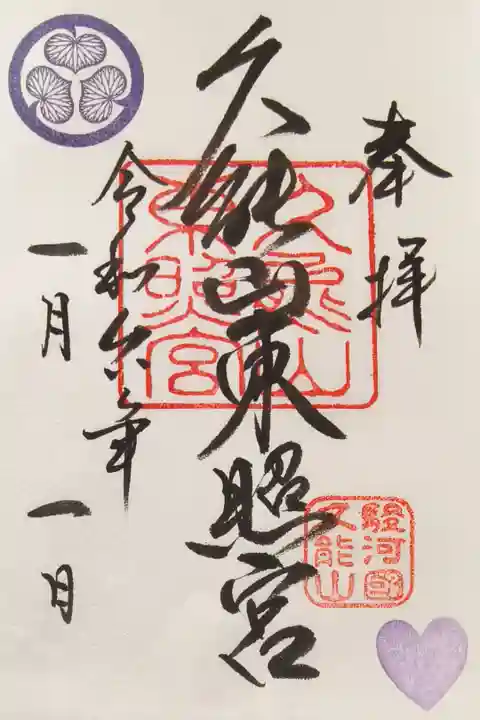 奉拝
久能山東照宮
令和六年
一月一日
久能山
東照宮
駿河国
久能山